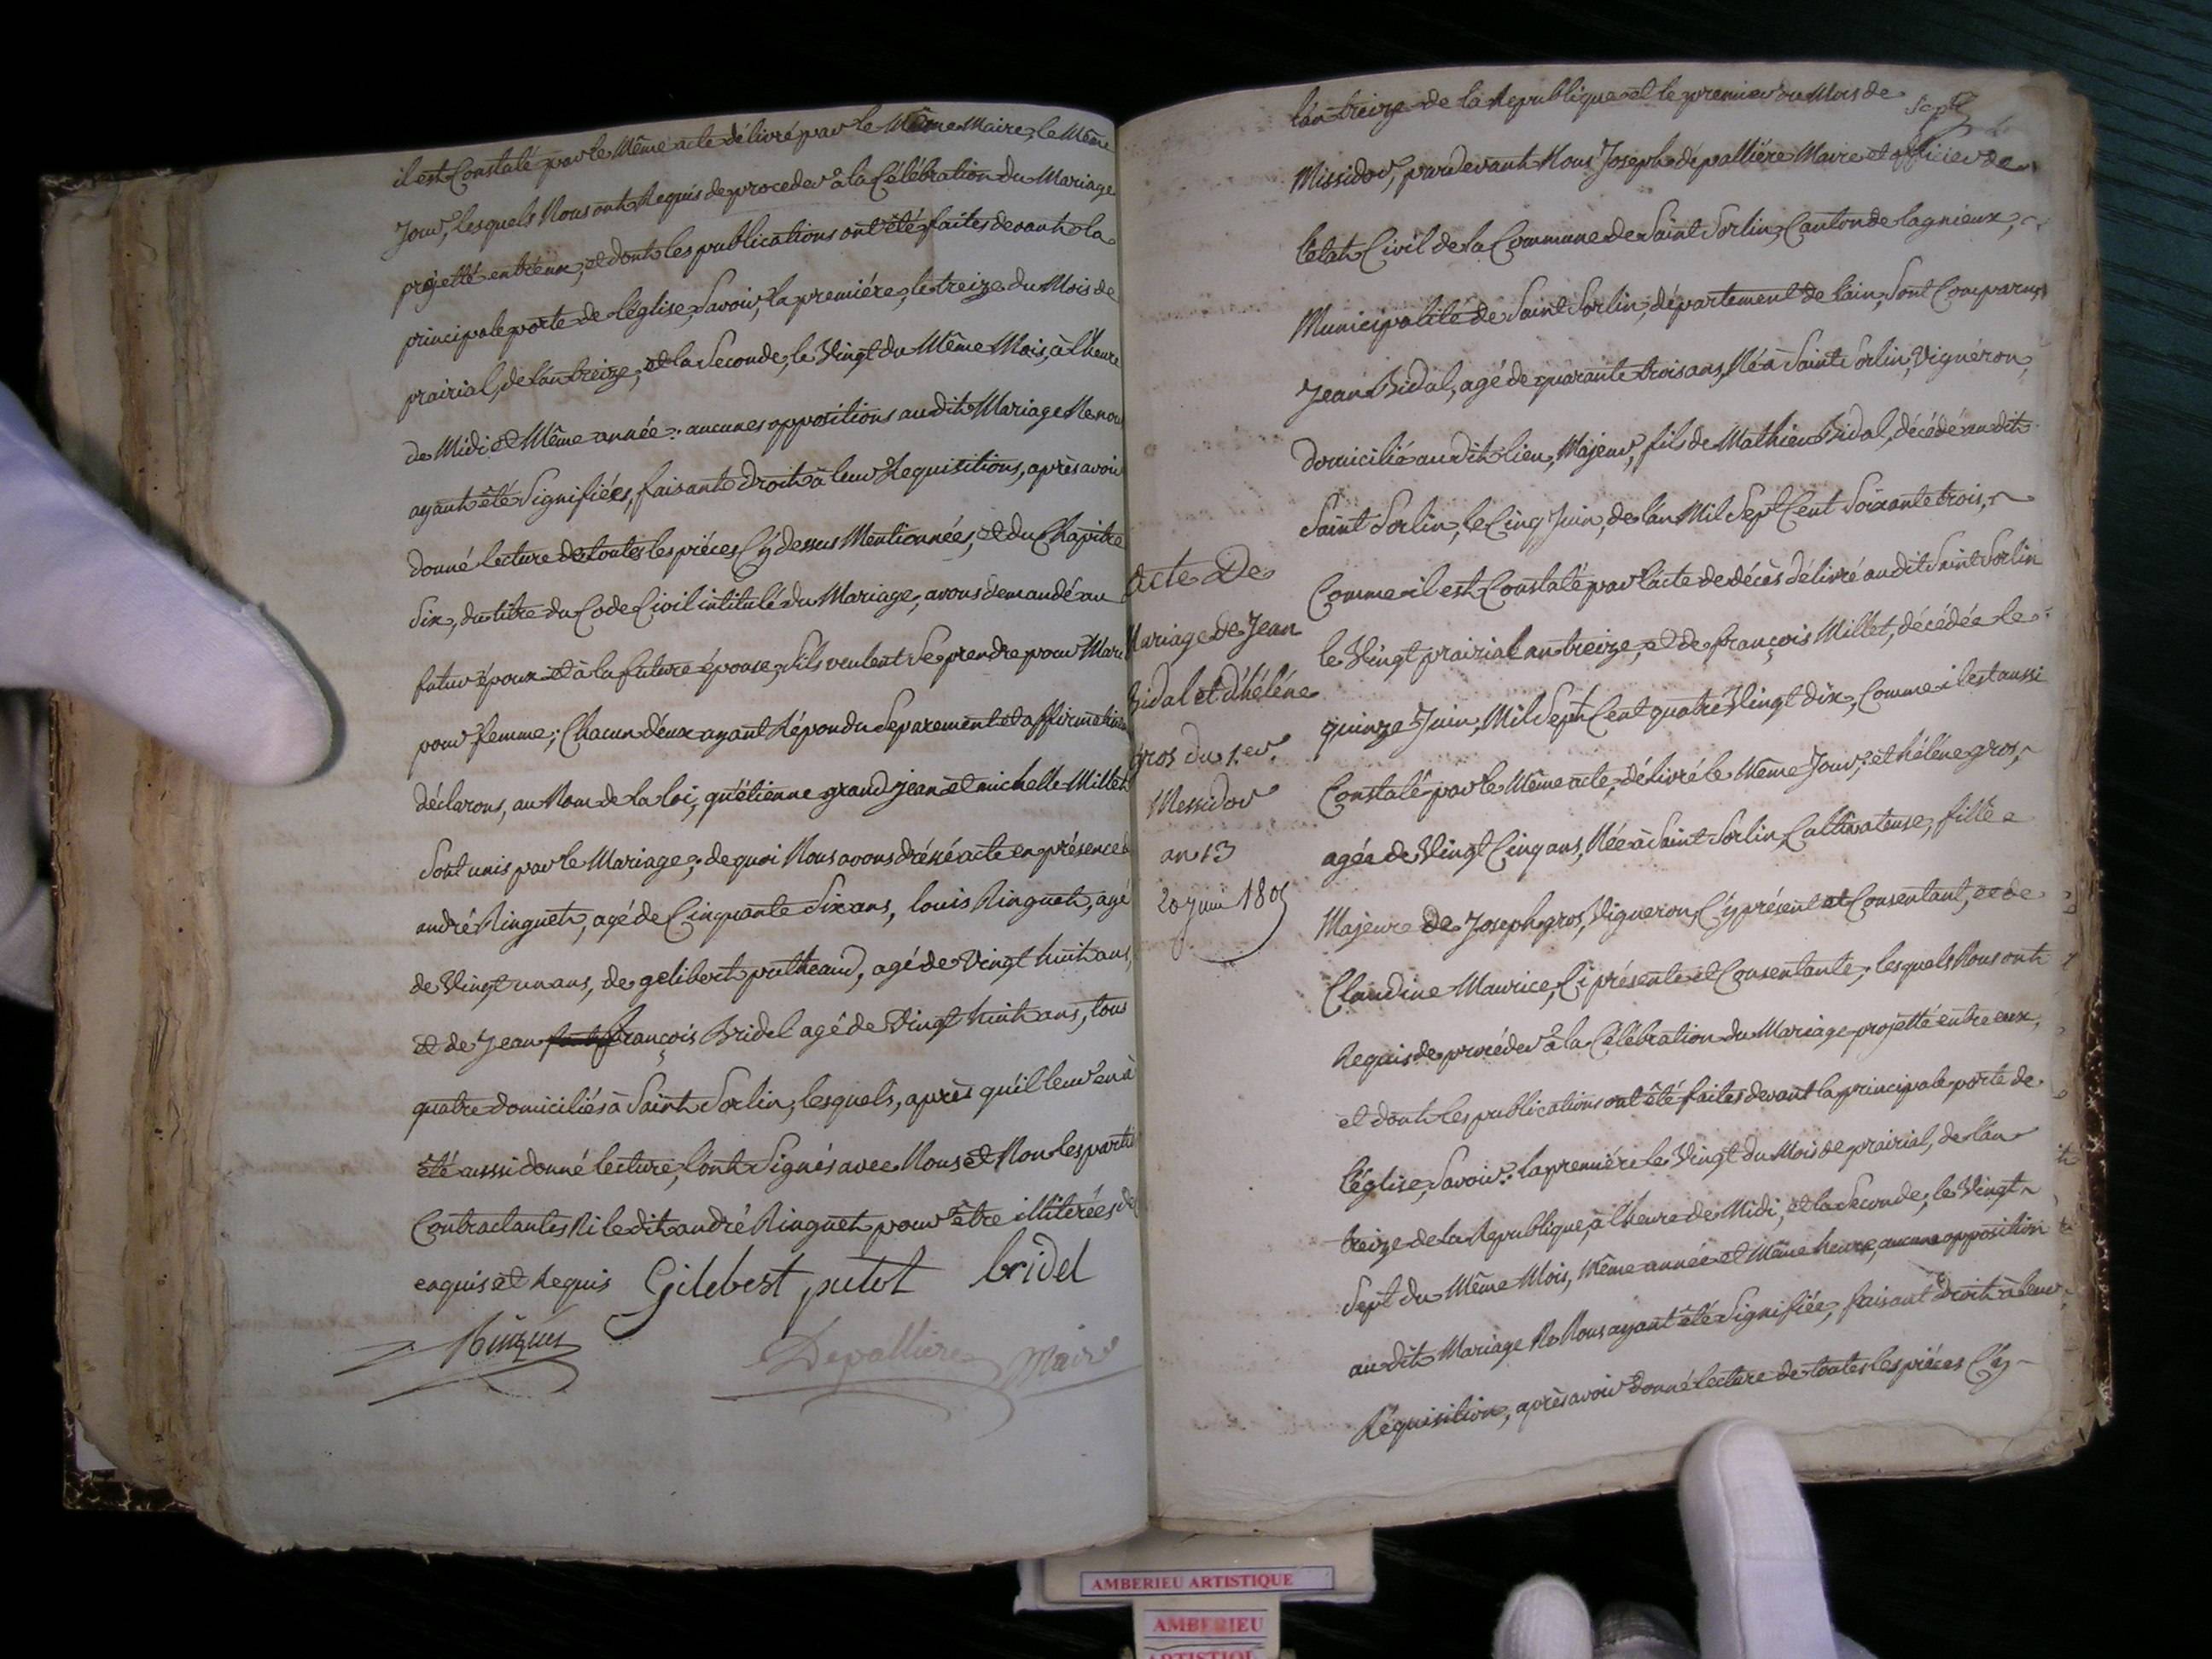 il est Constaté par le Même acte délivré par le Même Maire, le Même
Jour, lesquels Nous ont Requis de proceder à la Célébration du Mariage
projetté entr'eux, et dont les publications ont été faites devant la
principale porte de l'église, Savoir, la premiére, le treize du Mois de
prairial, de l'an treize, et la Seconde, le Vingt du Même Mois, à l'heure
de Midi et Même année: aucunes oppositions audit Mariage Ne nou
ayant été Signifiées, faisant droit à leur Requisitions, après avoir
donné lecture de toutes les piéces Cy dessus Mentionnées, et du Chapitre
Six, du titre du Code Civil intitulé du Mariage, avons demandé au
futur époux et à la future épouse, s'ils veulent Se prendre pour Mari
pour femme; Chacun d'eux ayant Répondu Separement et affirmative
déclarons, au Nom de la loi, qu'étienne grand jean et michelle Millet
Sont unis par le Mariage; de quoi Nous avons dréssé acte en présence d
andré Ringuet, agé de Cinquante Six ans, louis Ringuet, agé
de Vingt un ans, de gelibert putheaud, agé de Vingt huit ans,
et de Jean françois Bridel agé de Vingt huit ans, tous
quatre domiciliés à Saint Sorlin, lesquels, après qu'il leur en à
été aussi donné lecture, l'ont Signés avec Nous et Non les partis
Contractantes Ni le dit andré Ringuet pour être illitérées de
enquis et Requis Gilebert putot bridel
Ringuet
Depalliere Maire
l'an treize de la Republique et le premier du Mois de
Missidor, pardevant Nous Joseph dépalliére Maire et officier de
l'état Civil de la Commune de Saint Sorlin, Canton de lagnieux,
Municipalité de Saint Sorlin, département de l'ain, Sont Comparus
Jean Bidal, agé de quarante trois ans, Né à Saint Sorlin, Vignéron,
domicilié audit lieu, Majeur, fils de Mathieu Bidal, décédé audit
Saint Sorlin, le Cinq Juin, de l'an Mil Sept Cent Soixante trois,
Comme il est Constaté par l'acte de décès délivré audit Saint Sorlin
le Vingt prairial an treize, et de françois Millet, décédée le
quinze Juin, Mil Sept Cent quatre Vingt dix, Comme il est aussi
Constaté par le Même acte, délivré le Même Jour; et hélène gros,
agée de Vingt Cinq ans, Née à Saint Sorlin, Cultivateuse, fille
Majeure de Joseph gros, Vigneron, Cy présent et Consentant, et de
Claudine Maurice, Ci présente et Consentante; lesquels Nous ont
Requis de procéder à la Célébration du Mariage projetté entre eux,
et dont les publications ont été faites devant la principale porte de
l'église, Savoir: la premiére le Vingt du Mois de prairial, de l'an
treize de la Republique, à l'heure de Midi, et la Seconde; le Vingt
Sept du Même Mois, Même année et Même heure, aucune opposition
audit Mariage Ne Nous ayant été Signifiée, faisant droit à leur
Réquisition, après avoir donné lecture de toutes les piéces Cy
acte De
Mariage de Jean
Bidal et d'hélène
gros du 1.er
Messidor
an 13
20 juin 1805
AMBERIEU ARTISTIQUE
AMBERIEU
ARTISTIQUE